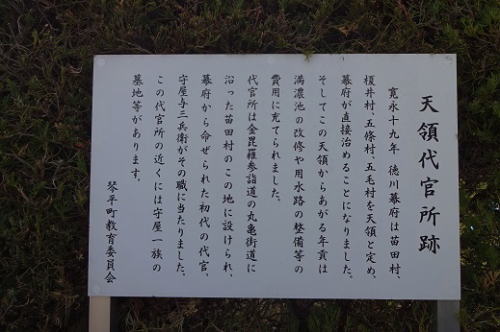 天領代官所跡
寛永十九年、徳川幕府は苗田村、
榎井村、五條村、五毛村を天領と定め、
幕府が直接治めることになりました。
そしてこの天領からあがる年貢は
満濃池の改修や用水路の整備等の
費用に充てられました。
代官所は金毘羅参詣道の丸亀街道に
沿った苗田村のこの地に設けられ、
幕府から命ぜられた初代の代官、
守屋与三兵衛がその職に当たりました。
この代官所の近くには守屋一族の
墓地等があります。
琴平町教育委員会